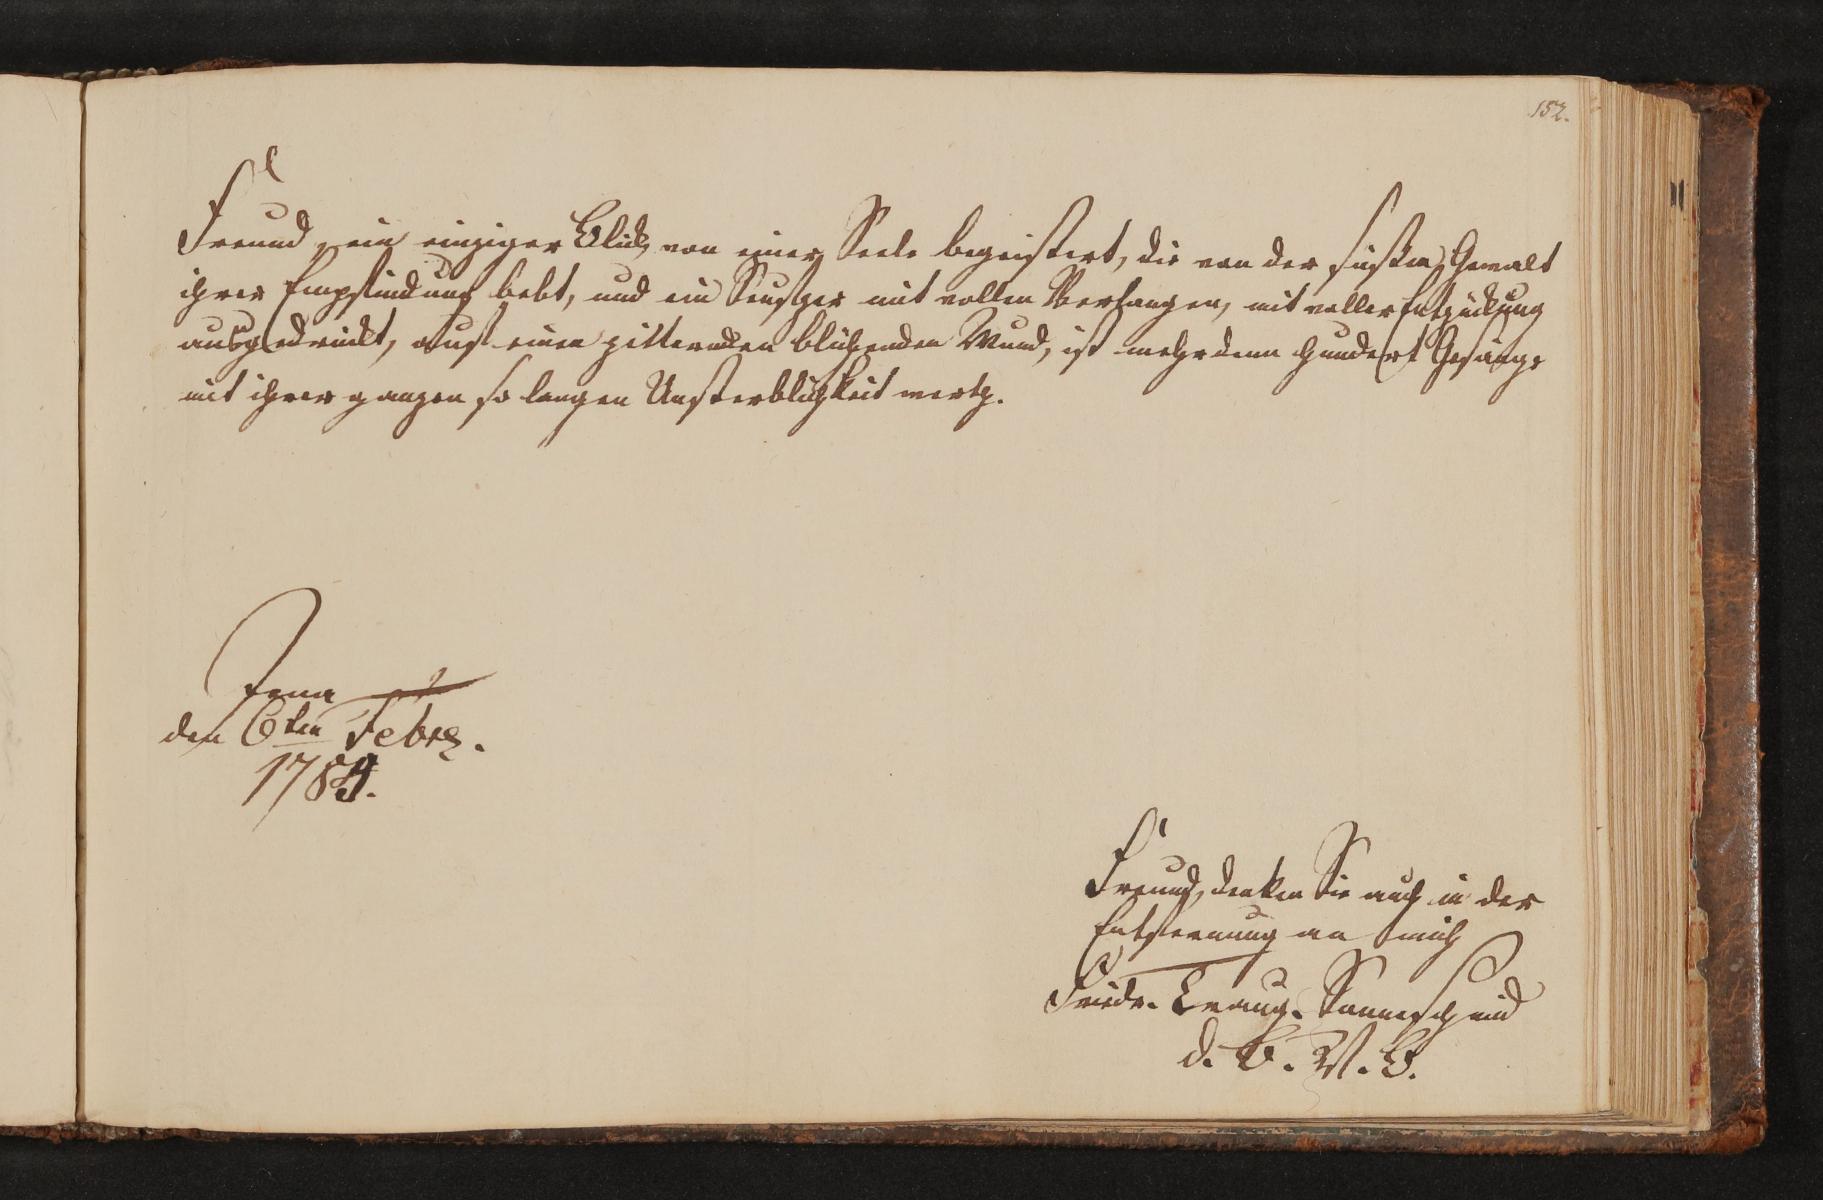 152.
Freund, ein einziger Blick, von einer Seele begeistert, die von der süßen Gewalt
ihrer Empfindung bebt, und ein Seufzer mit vollen Verlangen, mit voller Entzückung
ausgedrückt, auf einen zitternden blühenden Mund, ist mehr denn hundert Gesänge
mit ihrer ganzen so langen Unsterblichkeit werth.
Jena
den 6ten Febr.
1784.
Freund, denken Sie auch in der
Entfernung an mich
Friedr. Traug. Sonneschmid
d. B. W. B.